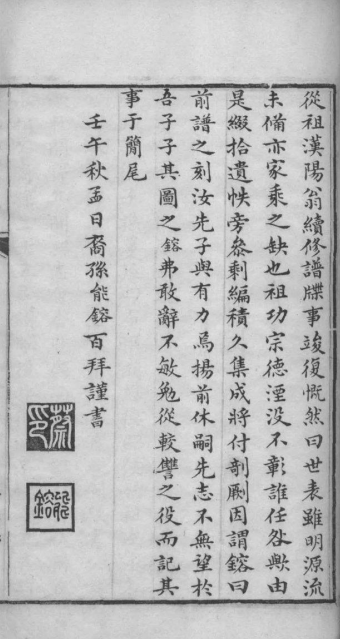 從祖漢陽翁續修譜牒事竣復慨然曰世表雖明源流
未備亦家乘之缺也祖功宗德湮没不彰誰任咎歟由
是綴拾遺帙旁叅剩編積久集成將付剞劂因謂鎔曰
前譜之刻汝先子與有力焉揚前休嗣先志不無望於
吾子子其圖之鎔弗敢辭不敏勉從較讐之役而記其
事于簡尾
壬午秋孟日裔孫能鎔百拜謹書
蔡印
能鎔